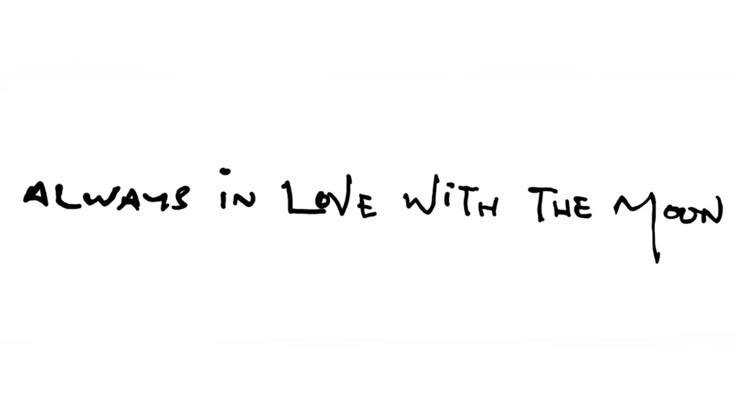 ALWAYS iN LOVE WiTH THE MOON